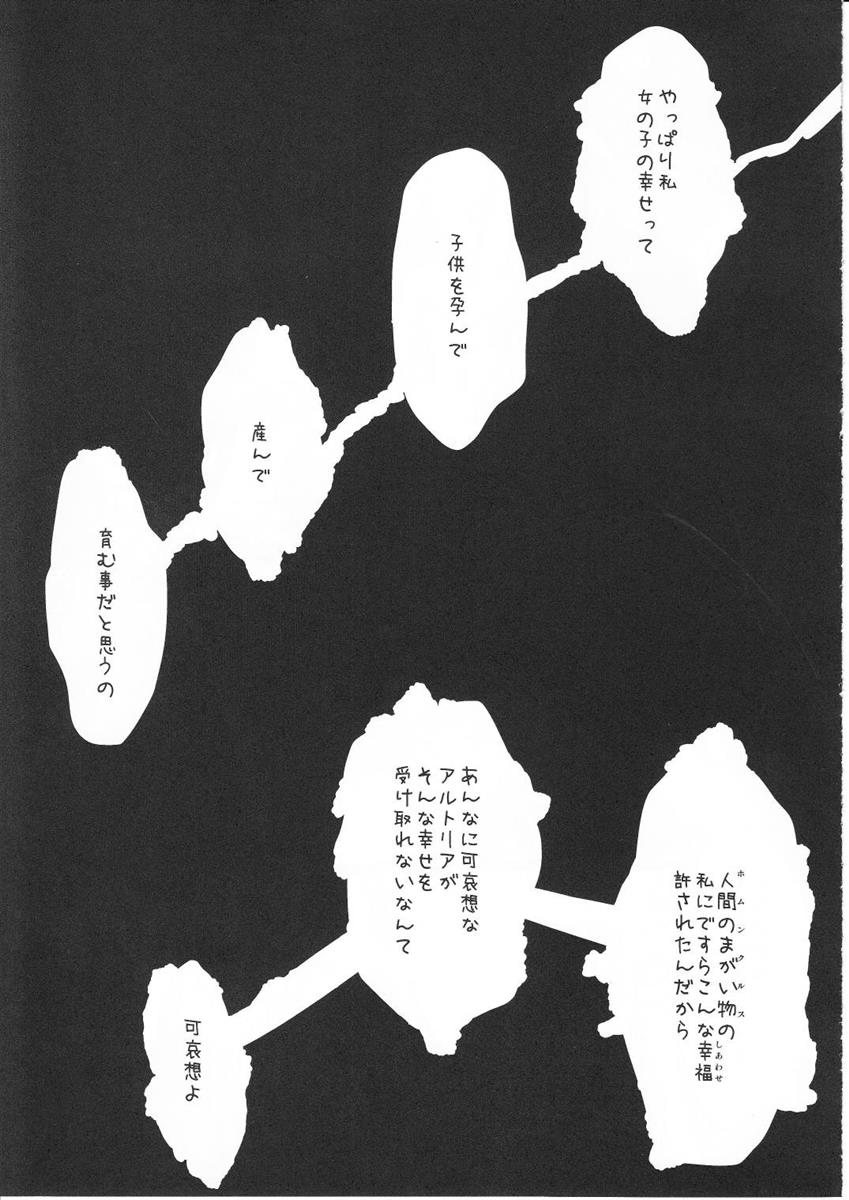 やっぱり私
女の子の幸せって
子供を孕んで
産んで
育む事だと思うの
人間のまがい物の
ホムンクルス
私にですらこんな幸福
しあわせ
許されたんだから
あんなに可哀想な
アルトリアが
そんな幸せを
受け取れないなんて
可哀想よ